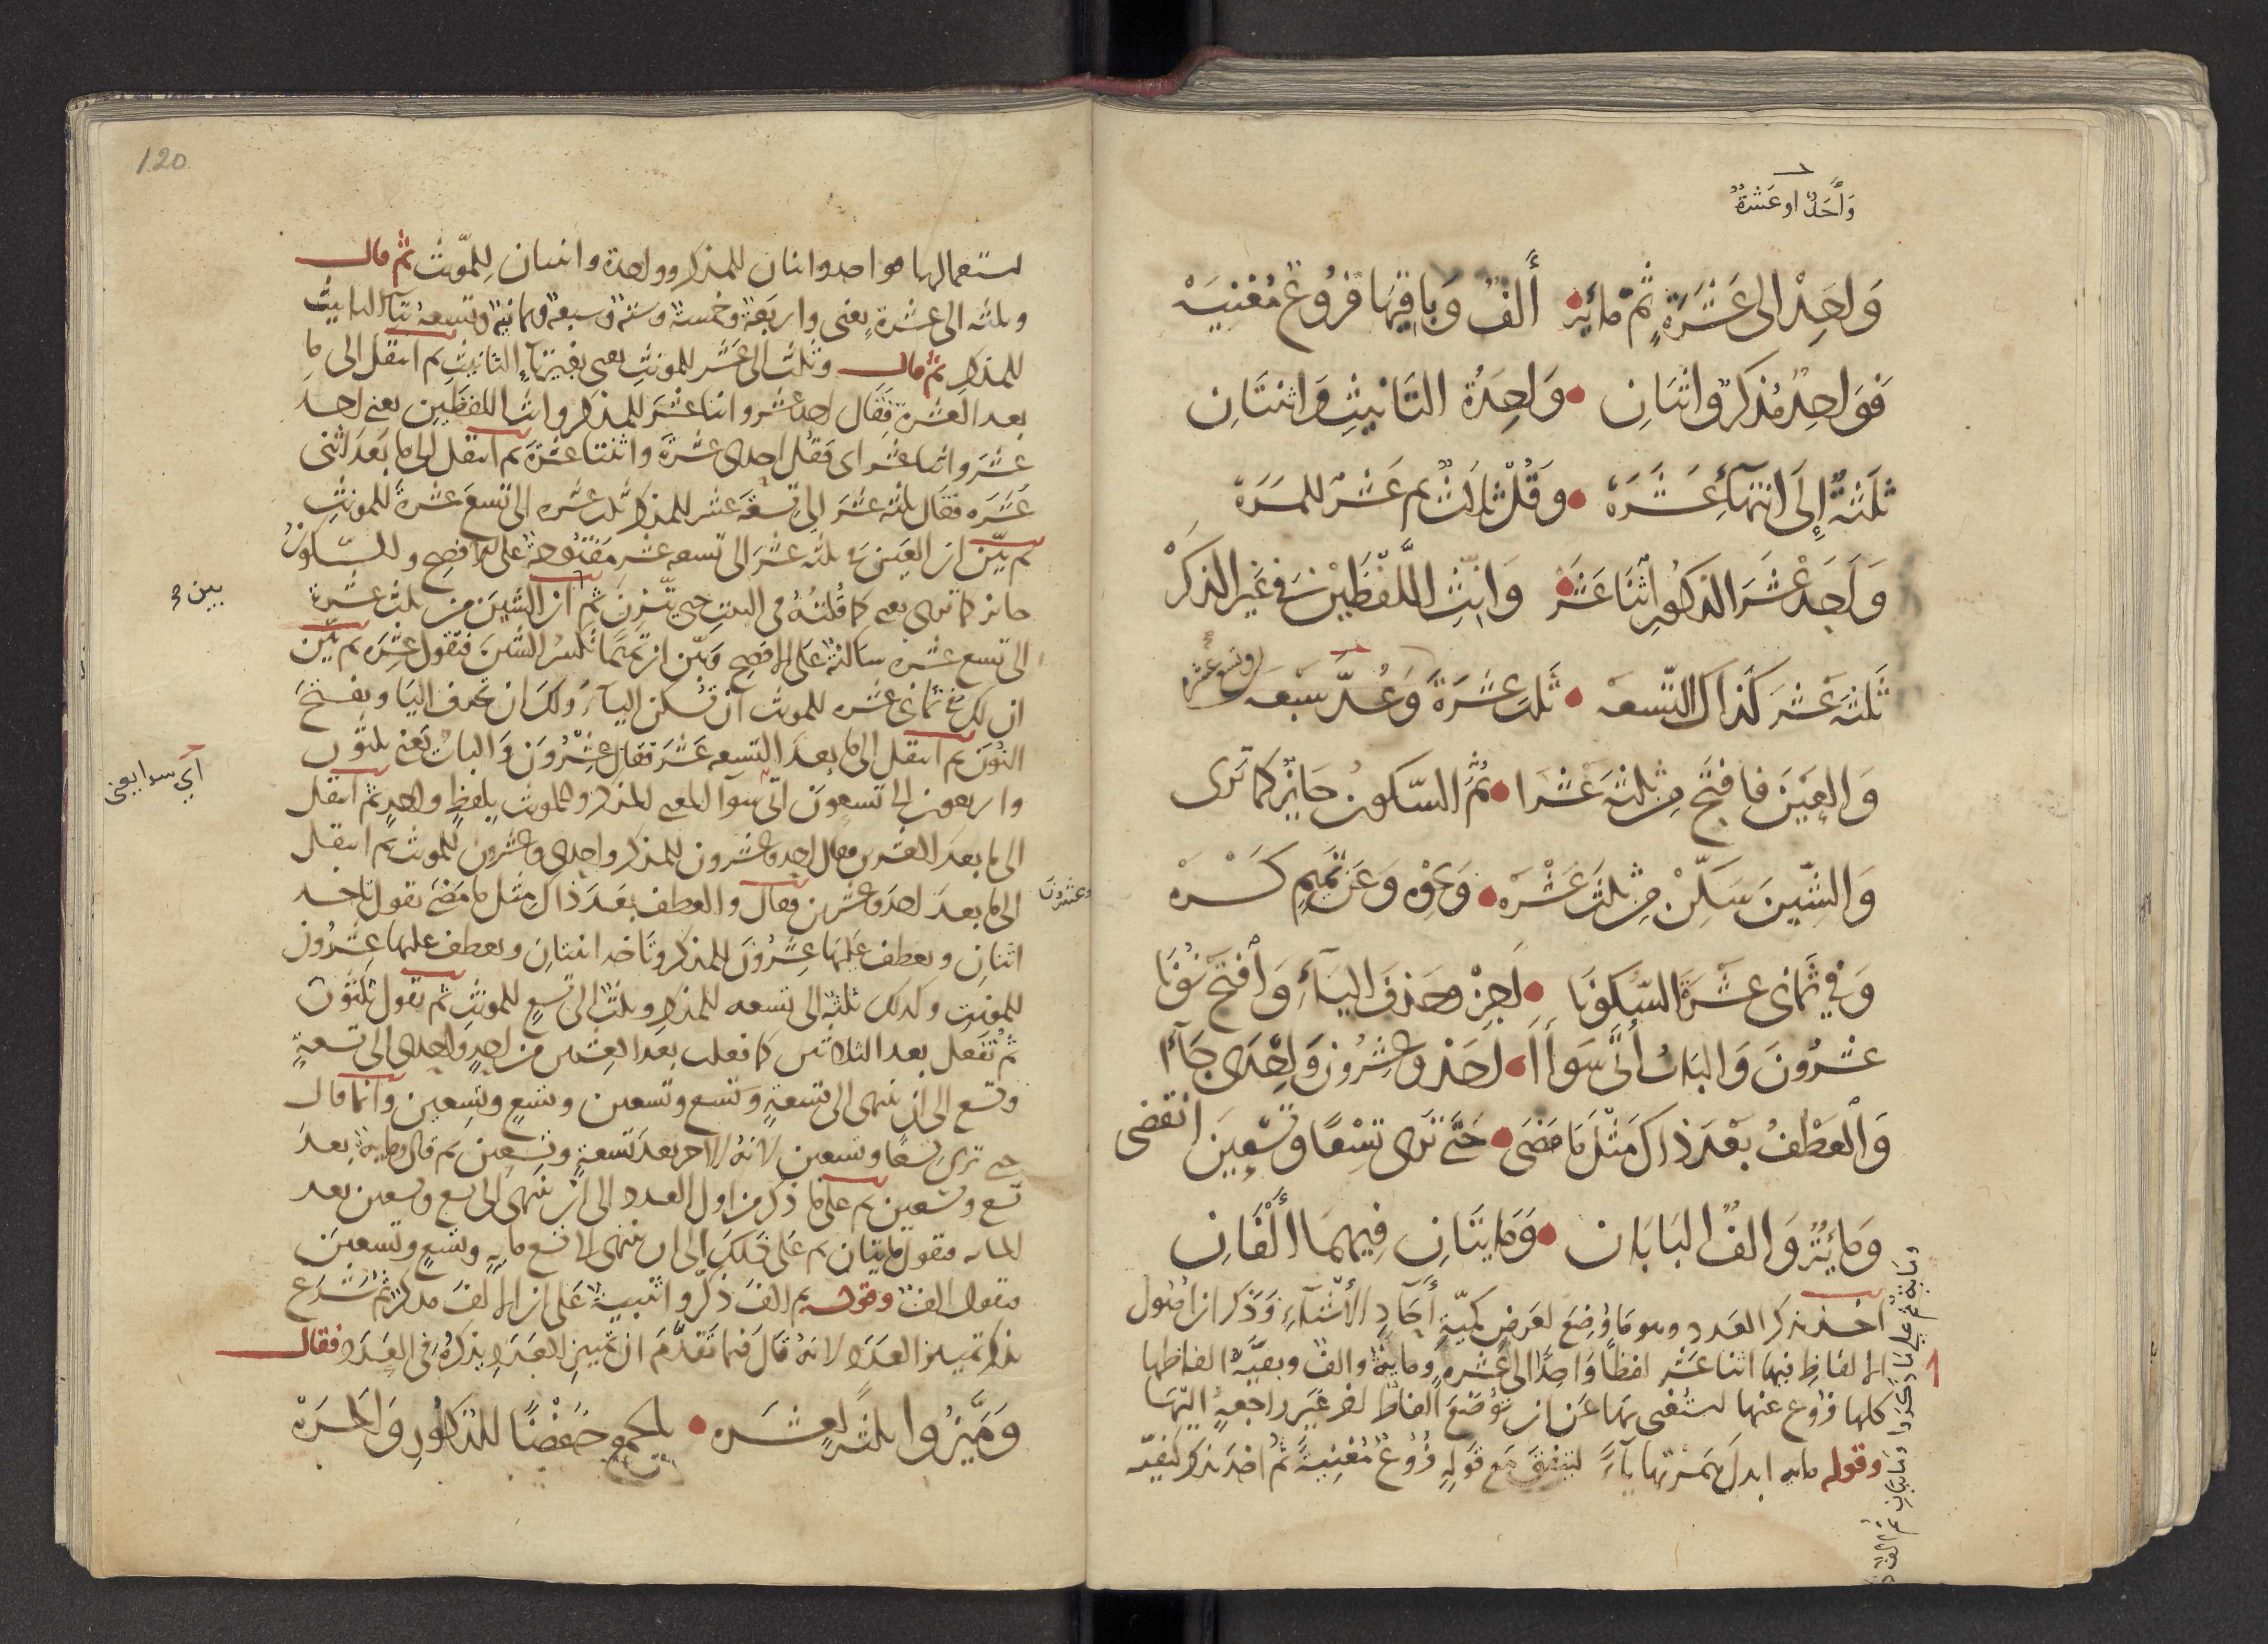 وَاحَدٌ او عَشرة
وَاحِدْ الى عَشَرَةٍ ثم مائيه ألفٌ وَبَاقِيهَا فرُوعٌ مُغنِيَهْ
فَوَاحِدٌ مُذكرٌ واثنَانِ وَاحِدَةُ التَانيثِ وَاثنتَانِ
ثلَثةٌ إلَى انتهَآءِ عَشَرَهْ وَقُلْ ثلثٌ ثم عَشرٌ للمَرَهْ
وَاَحَدَ عْشَرَ الذكورِ اثنَا عَشَرْ وَانِّثِ اللَّفظَيْنِ في غَير الذكَرْ
ثَلثَةَ عَشَرَ كَذاكَ التّسعَهْ ثَلثَ عَشَرَةَ وَعُدَّ سَبْعَهْ
او تسع عشره
وَالعَيْنَ فافتَحْ مِن ثلثةَ عَشَرا ثُمَّ السّكونُ جَايزٌ كما تَرى
وَالشّينَ سَكّنْ مِن ثلثَ عَشْرَهْ وَنحوِهِ وَعَن تميمٍ كَسْرَهْ
وَفي ثَمَانى عَشْرَةَ السّكونَا اَجِزْ وحَذفَ اليَآءِ وَافتَحْ نُونَا
عشرُونَ وَالبَابُ أَتَى سَوَآءَا احَدْ وعِشرُونَ وَإحْدَى جَآءَا
وَالعَطفُ بَعْدَ ذاكَ مثلَ مَا مَضَى حَتّى تَرى تِسْعًا وتسْعِينَ انقضى
وَمَائيَةٌ وَالفٌ البَابَانِ وَمَايتَانِ فِيهمَا ألفَانِ
اخذ يذكر العَدد وهو مَا وُضِعَ لغَرضِ كميّةِ أحَادِ الأشيَآءِ وَذكر ان اصُول
الالفاظِ فيها اثنا عَشر لفظًا وَاحِدٌ الى عَشَره ومايةٌ والفٌ وبقيَّةُ الفاظها
كلها فروع عنها لتُغنى بهَا عَن ان تُوضَعَ الفاظٌ اخر غَير راجعهٍ اليهَا
وقوله مايه ابدلَ همزتها يآءً لتتفقَ مَع قولِهِ فرُوعٌ مُغنِيةٌ ثم اخذ يذكر كيفيّه
120
استعمالها فواحد واثنان للمذكر وواحدة واثنتان للمؤنث ثم قال
وثلثه الى عشرةٍ يعنى واربَعَةٌ وخمسةٌ وستةٌ وسبعةٌ وثمانيةٌ وتسعةٌ بتآ التانيث
للمذكرِ ثم قال وثلث الى عَشر للمونثِ يعنى بغير تآءِ التانيثِ ثم انتقل الى ما
بعد العَشرة فقَال احد عشر واثنا عشرَ للمذكر وانث اللفظَينِ يعنى احد
عشَرَ واثنا عشر اى فقل احدى عَشرَةَ واثنتا عشرَةَ ثم انتقل الى ما بَعدَ اثنى
عَشَره فقال ثلثه عشرَ الى تِسعَة عشر للمذكر وثلث عشره الى تسعَ عشرةَ للمونثِ
ثم بيّن ان العَين مِن ثلثه عشرَ الى تسعه عشر مفتوحَةٌ على الافصحِ والسّكونُ
جايز كما ترى يعنى كما قلتهُ فى البيتِ حين يتّزن ثم ان الشينَ من ثلث عشرة
بين
الى تسع عشره ساكنةٌ على الافصحِ وَبيّن ان تميمًا تكسرُ الشينَ فتقول عشِرَه ثم بيّن
ان لك فى ثمانى عشره للمونث ان تُسكن اليآءَ ولكَ ان تحذف اليا وتفتحَ
النُون ثم انتقل الى ما بعدَ التسعه عَشَرَ فقال عِشرُون وَالبابُ يَعنى ثلثون
واربعون الى تسعونَ اتى سوآ للمذكر والمونث بلفظٍ واحدٍ ثم انتقل
اى سوا يعنى
الى ما بعدَ العشرين فقال احد وعشرون للمذكر واحدى وعشرون للمونث ثم انتقل
الى ما بعدَ احد وعشرين فقال والعطف بَعدَ ذاك مثل ما مَضى تقول تاخد
وعشرونَ
اثنانِ وتعطف عَليهَا عِشرُونَ للمذكر وتاخد اثنتانِ وتعطف عليها عِشرُون
للمونثِ وكذلك ثلثه الى تسعه للمذكر وثلث الى تسعٍ للمونثِ ثم تقول ثلثون
ثم تفعَل بعد الثلاثين كما فعلت بعد العشرين من احدٍ واحدى الى تسعةٍ
وتسع الى ان تنتهى الى تسعةٍ وتسع وتسعين وتسعٍ وتسعين وانما قال
حتى ترى تسعًا وتسعين لانهُ لا اخر بعدَ تسعةٍ وتسعين ثم قال ومايةٌ بعدَ
تسع وتسعين ثم على ما ذكر من اول العدد الى ان ينتهى الى تسع وتسعين بعد
المايه فتقول مايتانِ ثم عَلى ذلكَ الى ان ينتهى الى تسع مايهٍ وتسعٍ وتسعينَ
فتقول الفٌ وقوله ثم الفٌ ذكّر تنبيهٌ عَلى ان الالفَ مذكرٌ ثم شرَع
يذكر تمييز العدَد لانهُ قال فيما تقدّمَ ان تمييز العَدَدِ يذكرُهُ فى العَدَد فقال
وَمَيّزُوا ثلثةً لعشَره بالجمعِ خَفْضًا للذكُورِ وَالمرَهْ